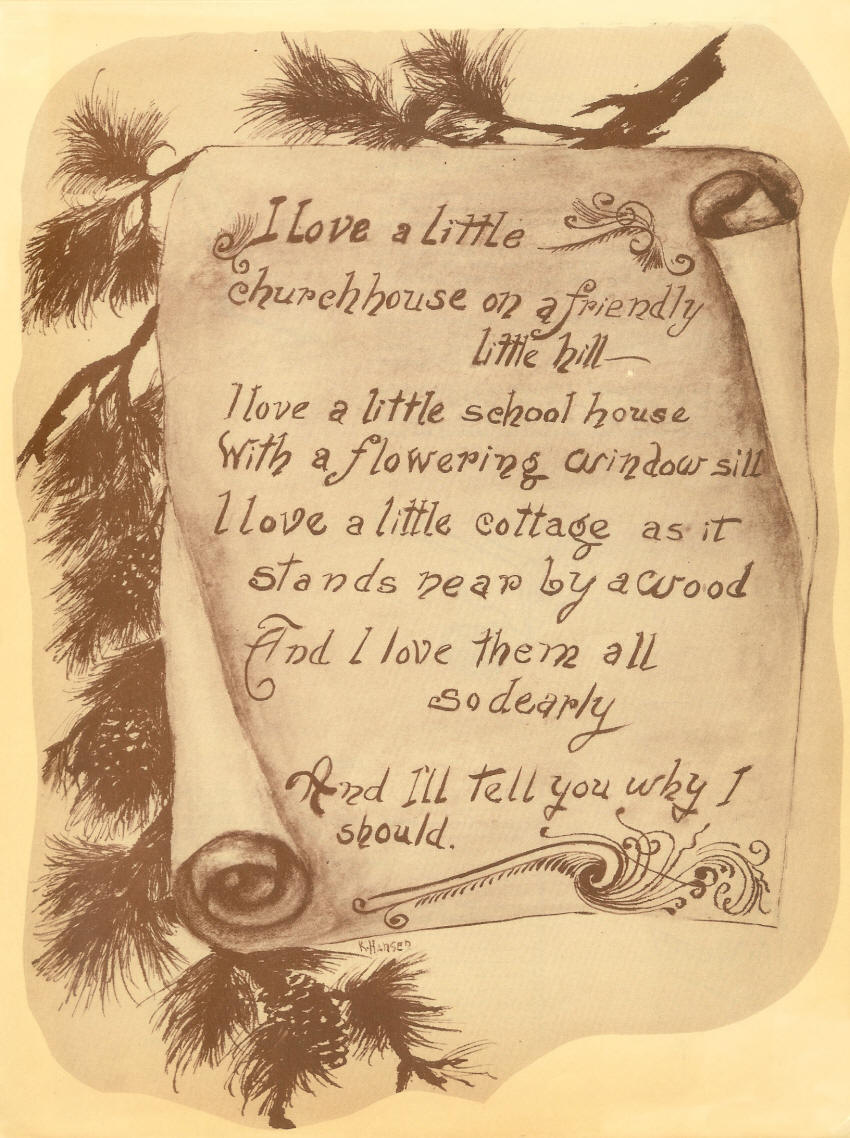 I Love a little
churchhouse on a friendly
little hill—
I love a little school house
With a flowering window sill
I love a little cottage as it
stands near by a wood
And I love them all
so dearly
And I'll tell you why I
should.
K. Hansen